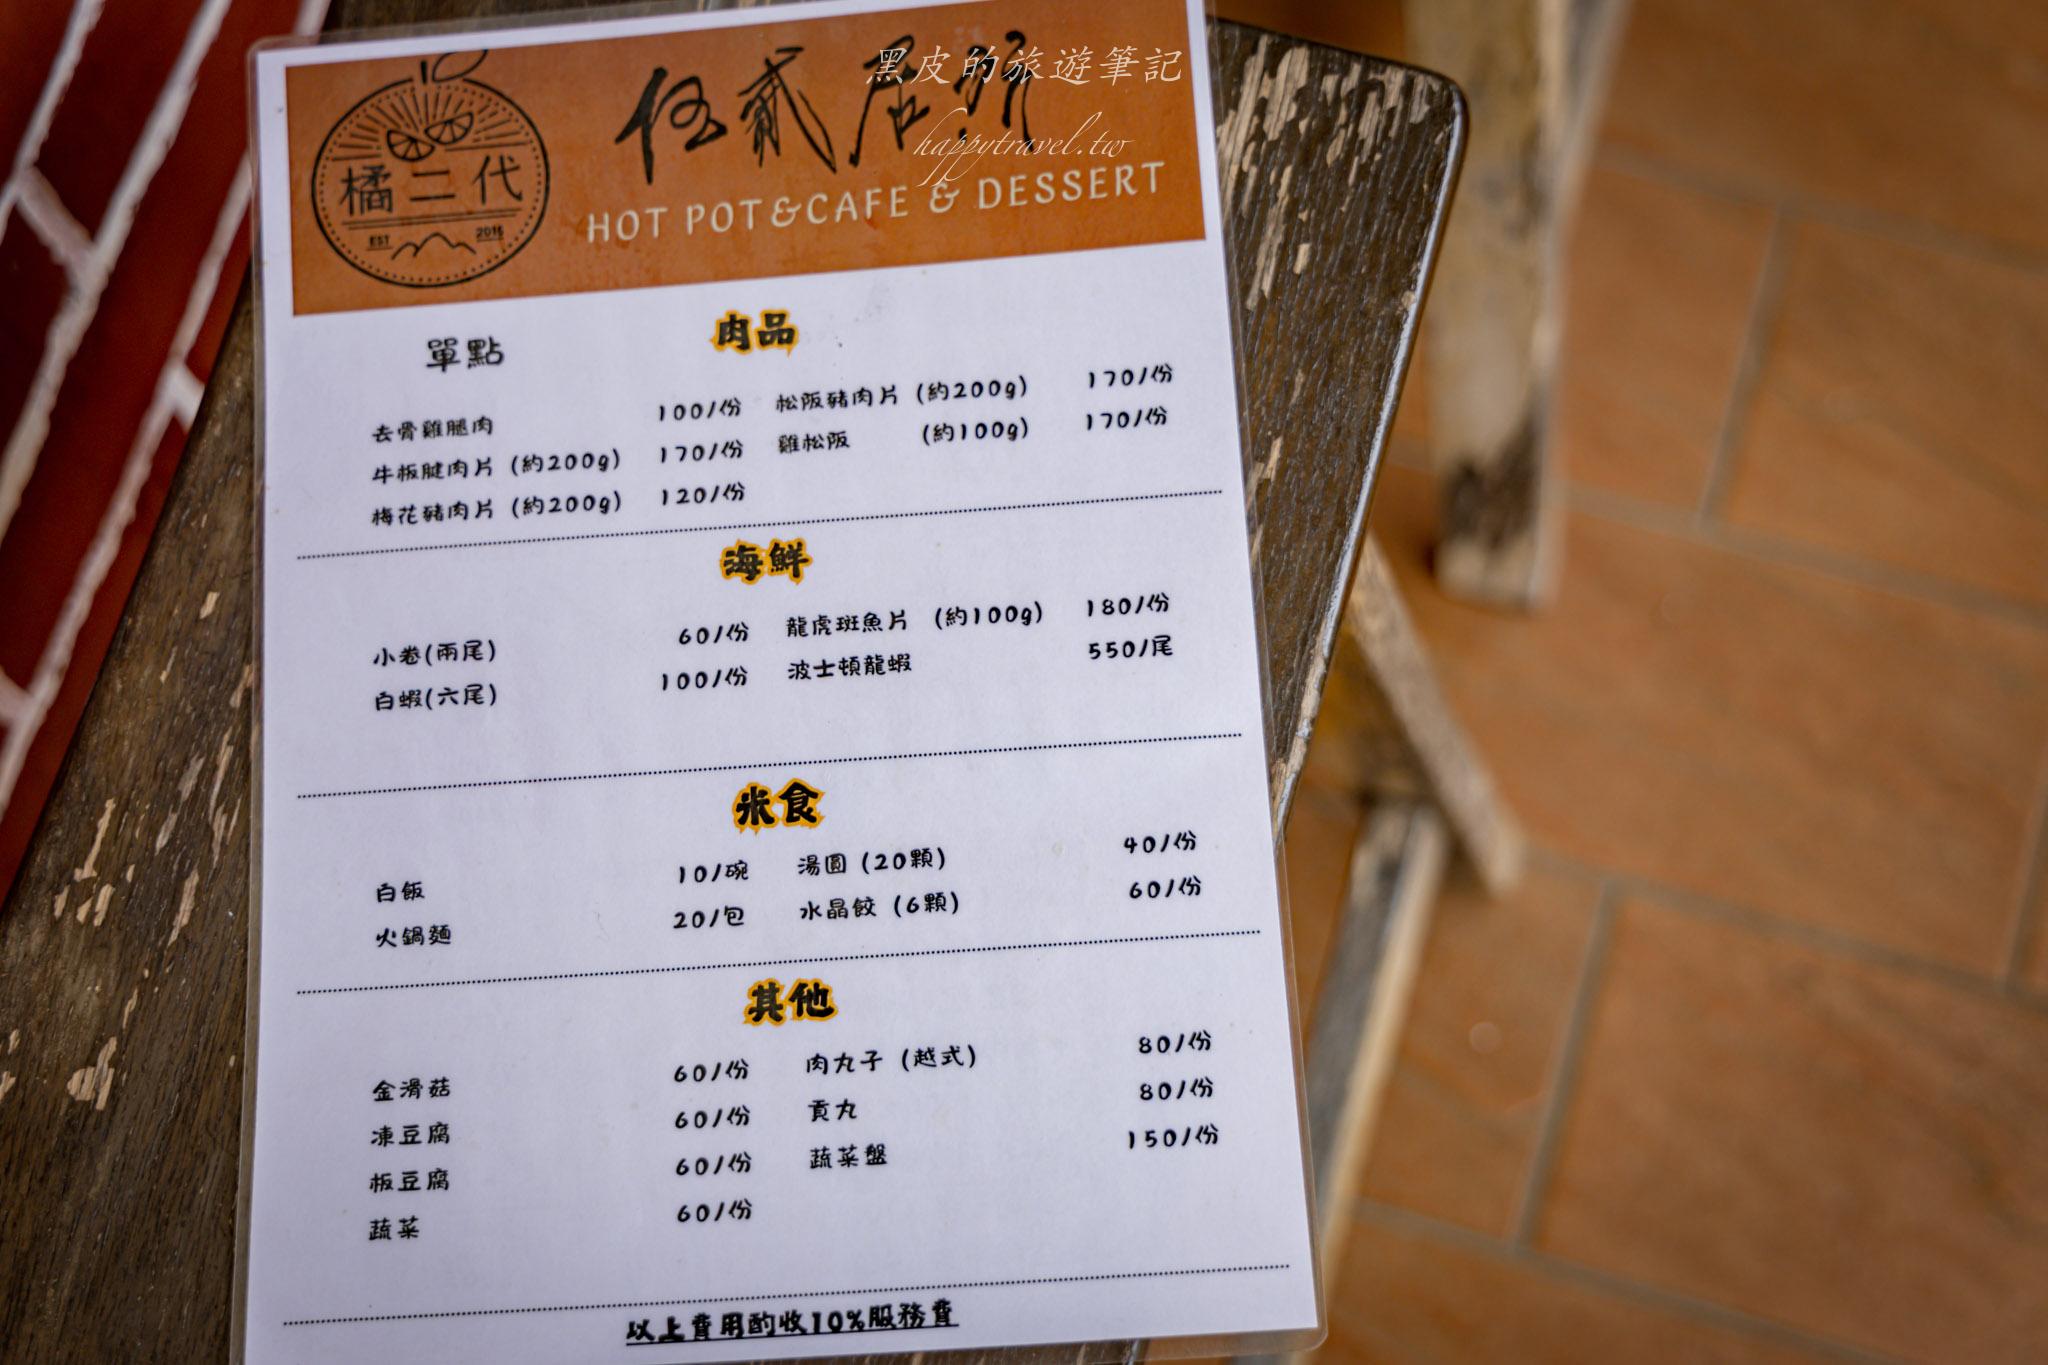 黑皮的旅遊筆記
happytravel.tw
伍貳居所
橘二代
EST 2016
HOT POT&CAFE & DESSERT
單點
肉品
去骨雞腿肉 100/份
松阪豬肉片 (約200g) 170/份
牛板腱肉片 (約200g) 170/份
雞松阪 (約100g) 170/份
梅花豬肉片 (約200g) 120/份
海鮮
小卷(兩尾) 60/份
龍虎斑魚片 (約100g) 180/份
白蝦(六尾) 100/份
波士頓龍蝦 550/尾
米食
白飯 10/碗
湯圓 (20顆) 40/份
火鍋麵 20/包
水晶餃 (6顆) 60/份
其他
金滑菇 60/份
肉丸子 (越式) 80/份
凍豆腐 60/份
貢丸 80/份
板豆腐 60/份
蔬菜盤 150/份
蔬菜 60/份
以上費用酌收10%服務費